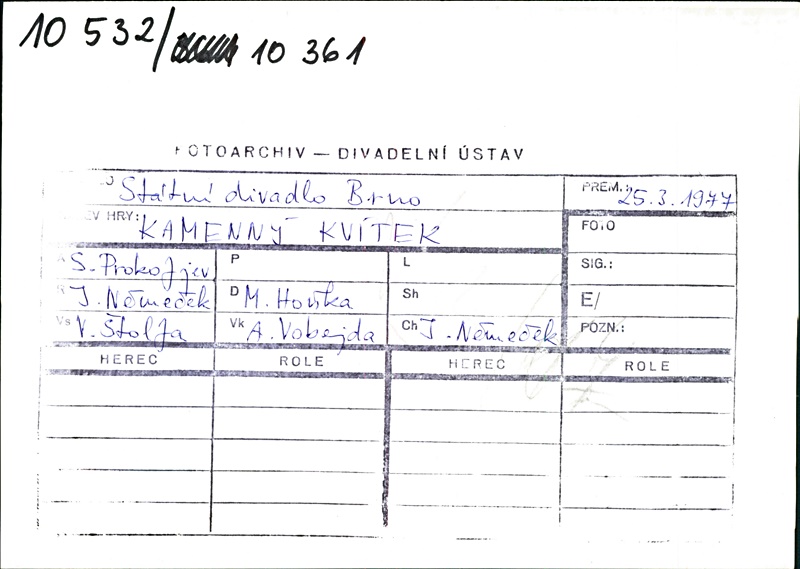 10 532/ 10 361
FOTOARCHIV — DIVADELNÍ ÚSTAV
Státní divadlo Brno PREM.: 25.3.1977
EV HRY: KAMENNÝ KVÍTEK FOTO
A S. Prokofjev P L SIG.:
R J. Němeček D M. Houska Sh E/
Vs V. Štolfa Vk A. Vobejda Ch J. Němeček POZN.:
HEREC ROLE HEREC ROLE